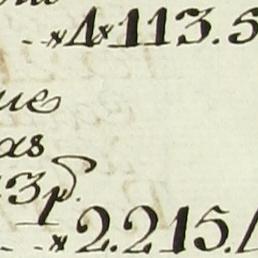 4*113.5
ue
as
3p.
*2.215.